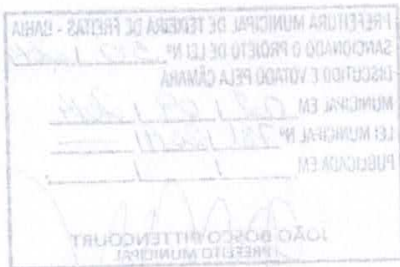 PREFEITURA MUNICIPAL DE TEIXEIRA DE FREITAS - BAHIA
SANCIONADO O PROJETO DE LEI Nº
DISCUTIDO E VOTADO PELA CÂMARA
MUNICIPAL EM
LEI MUNICIPAL Nº
PUBLICADA EM
JOÃO BOSCO BITTENCOURT
PREFEITO MUNICIPAL